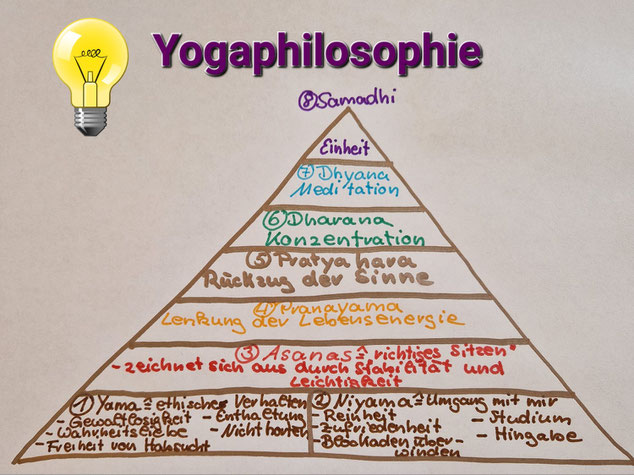 Yogaphilosophie
⑧ Samadhi
Einheit
⑦ Dhyana
Meditation
⑥ Dharana
Konzentration
⑤ Pratyahara
Rückzug der Sinne
④ Pranayama
Lenkung der Lebensenergie
③ Asanas ≙ richtiges Sitzen"
- zeichnet sich aus durch Stabilität und
Leichtigkeit
① Yama ≙ ethisches Verhalten
- Gewaltlosigkeit - Enthaltung
- Wahrheitsliebe - Nicht horten
- Freiheit von Habsucht
② Niyama ≙ Umgang mit mir
- Reinheit - Studium
- Zufriedenheit - Hingabe
- Blockaden über-
winden